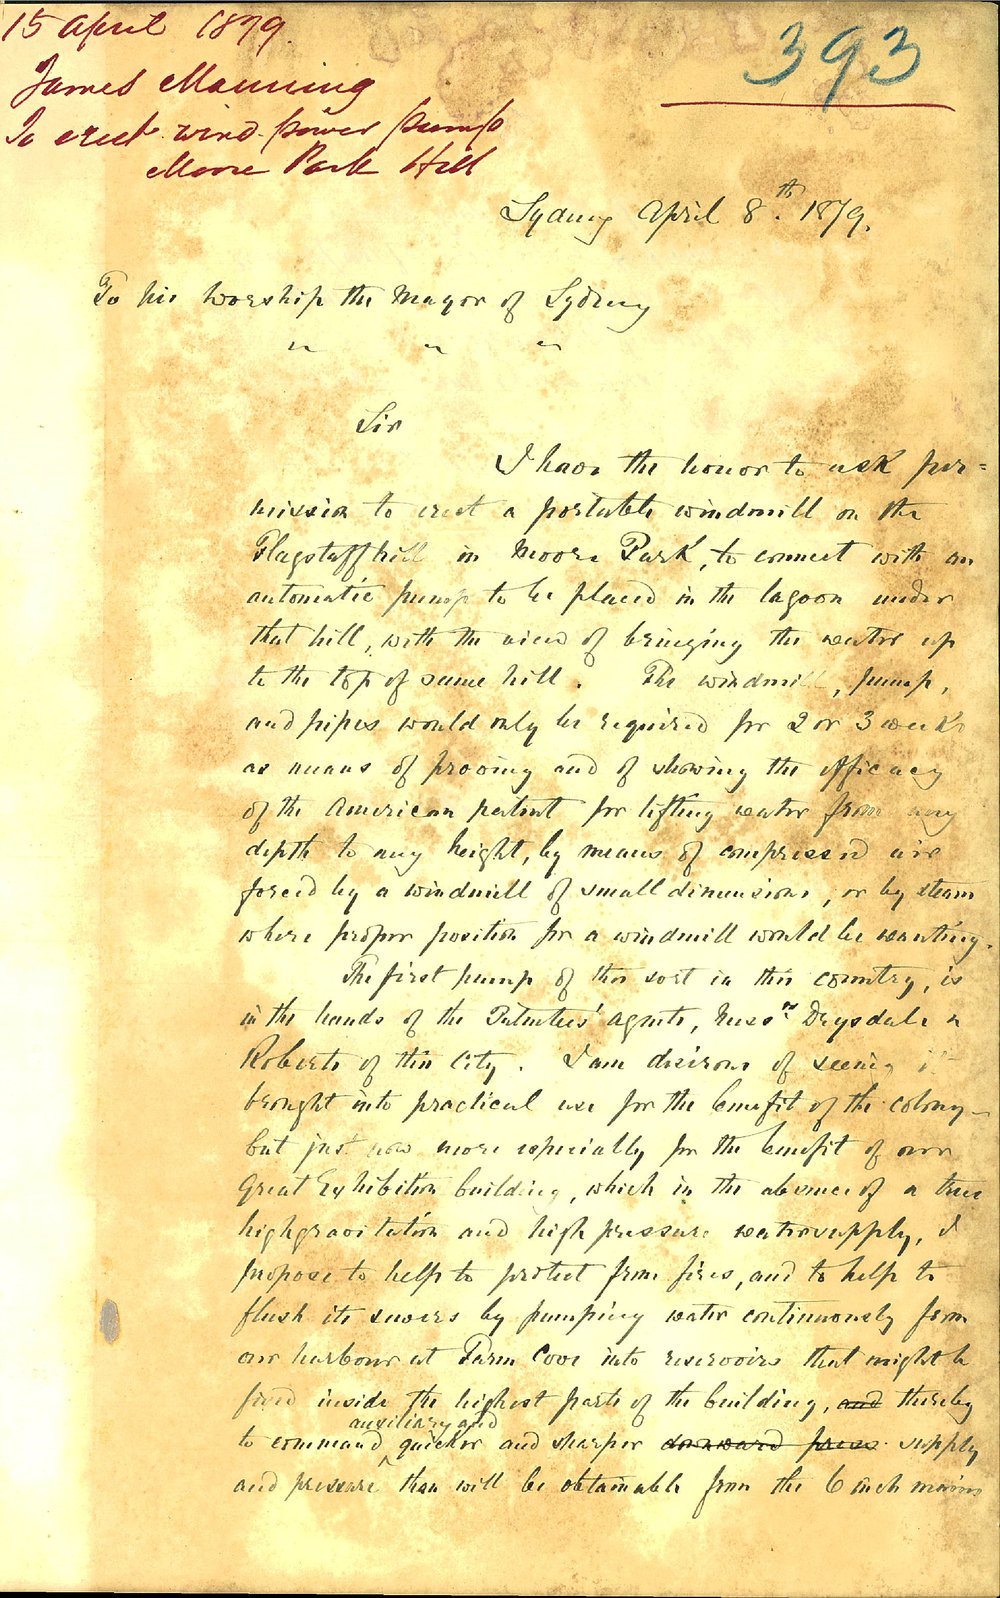 15 April 1879.
393
James Manning
To erect wind-power pump
Moore Park Hill
Sydney April 8th. 1879.
To his Worship the Mayor of Sydney
" " "
Sir
I have the honor to ask per=
mission to erect a portable windmill on the
Flagstaff hill in Moore Park, to connect with an
automatic pump to be placed in the lagoon under
that hill, with the view of bringing the water up
to the top of same hill. The windmill, pump,
and pipes would only be required for 2 or 3 weeks
as means of prooving and of showing the efficacy
of the American patent for lifting water from any
depth to any height, by means of compressed air
forced by a windmill of small dimensions, or by steam
where proper position for a windmill would be wanting.
The first pump of this sort in this country, is
in the hands of the Patentees' agents, Messrs Drysdale &
Roberts of this City. I am desirous of seeing it
brought into practical use for the benefit of the colony—
but just now more especially for the benefit of our
Great Exhibition building, which in the absence of a true
high gravitation and high pressure watersupply, I
propose to help to protect from fires, and to help to
flush its sewers by pumping water continuously from
our harbour at Farm Cove into reservoirs that might be
fixed inside the highest parts of the building, and thereby
auxiliary and
to command quicker and sharper downward press supply
and pressure than will be obtainable from the 6 inch mains